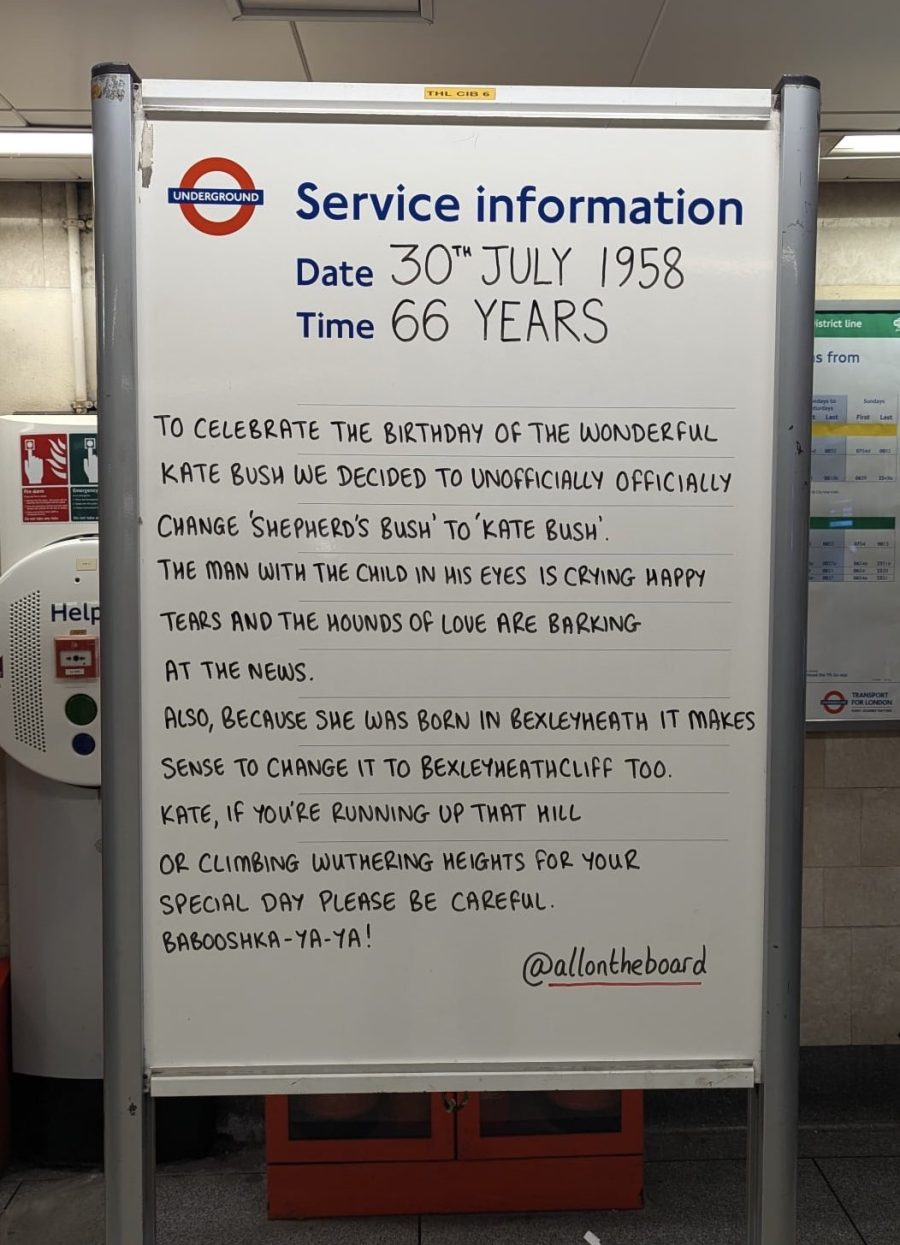 THL CIB 6
UNDERGROUND
Service information
Date 30TH JULY 1958
Time 66 YEARS
TO CELEBRATE THE BIRTHDAY OF THE WONDERFUL
KATE BUSH WE DECIDED TO UNOFFICIALLY OFFICIALLY
CHANGE 'SHEPHERD'S BUSH' TO 'KATE BUSH'.
THE MAN WITH THE CHILD IN HIS EYES IS CRYING HAPPY
TEARS AND THE HOUNDS OF LOVE ARE BARKING
AT THE NEWS.
ALSO, BECAUSE SHE WAS BORN IN BEXLEYHEATH IT MAKES
SENSE TO CHANGE IT TO BEXLEYHEATHCLIFF TOO.
KATE, IF YOU'RE RUNNING UP THAT HILL
OR CLIMBING WUTHERING HEIGHTS FOR YOUR
SPECIAL DAY PLEASE BE CAREFUL.
BABOOSHKA-YA-YA!
@allontheboard
Fire alarm
Emergency
Help
istrict line
s from
Sundays
Last First Last
TRANSPORT
FOR LONDON